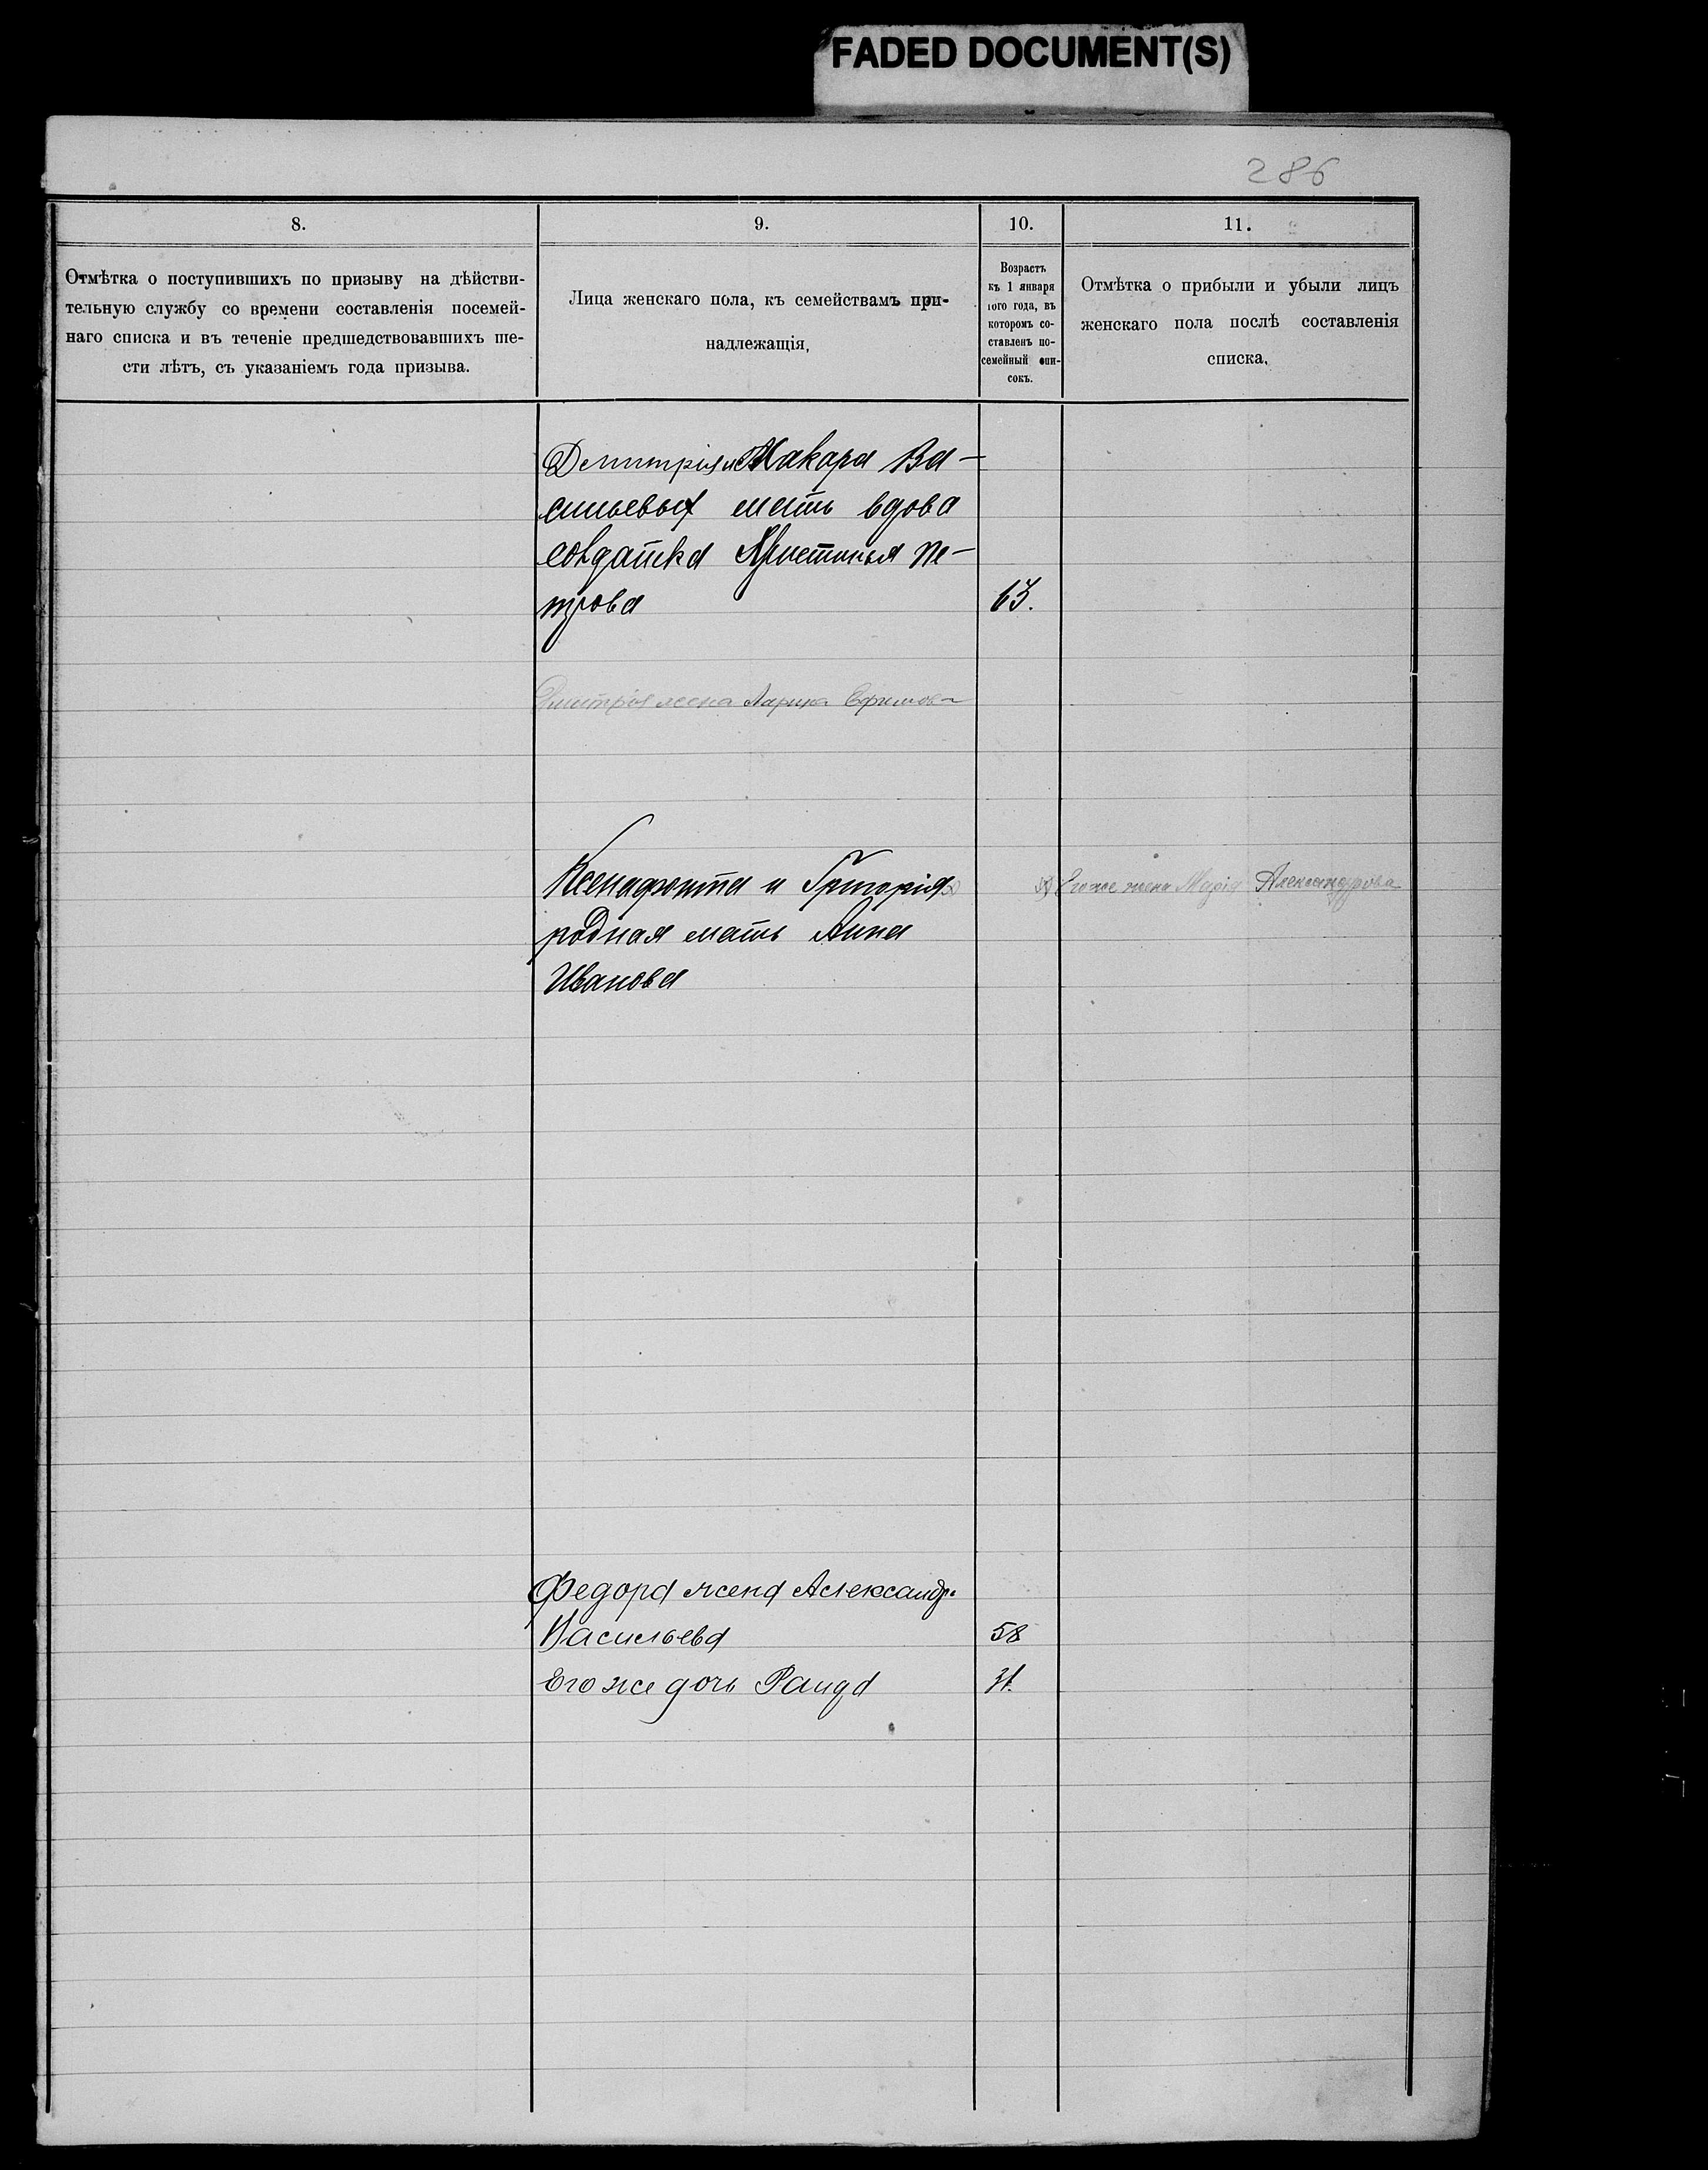 FADED DOCUMENT(S)
286
8.
9.
10.
11.
Отмѣтка о поступившихъ по призыву на дѣйстви-
тельную службу со времени составленія посемей-
наго списка и въ теченіе предшедствовавшихъ ше-
сти лѣтъ, съ указаніемъ года призыва.
Лица женскаго пола, къ семействамъ при-
надлежащія,
Возрастъ
къ 1 января
того года, въ
которомъ со-
ставленъ по-
семейный спи-
сокъ.
Отмѣтка о прибыли и убыли лицъ
женскаго пола послѣ составленія
списка.
Демитрія и Макара Ва-
сильевых мать вдова
солдатка Христинья Пе-
трова
63.
Дмитрія жена Ефимова
Ксенафонта и Григорія
Его же жена Марія Александрова
родная мать Анна
Иванова
Федора жена Александр.
Васильева
58
Его же дочь Раида
31.